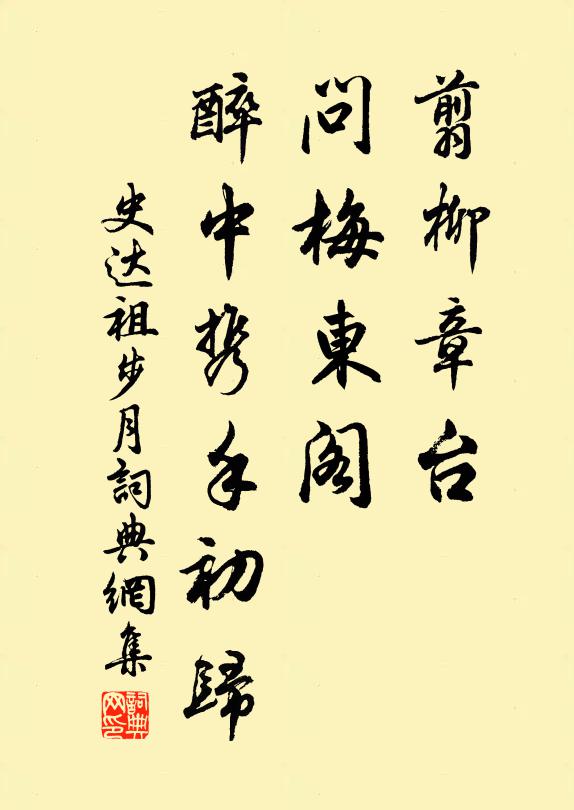 翦柳章台
問梅東閣
醉中携手初歸
史达祖步月詞典網集
詞典网印